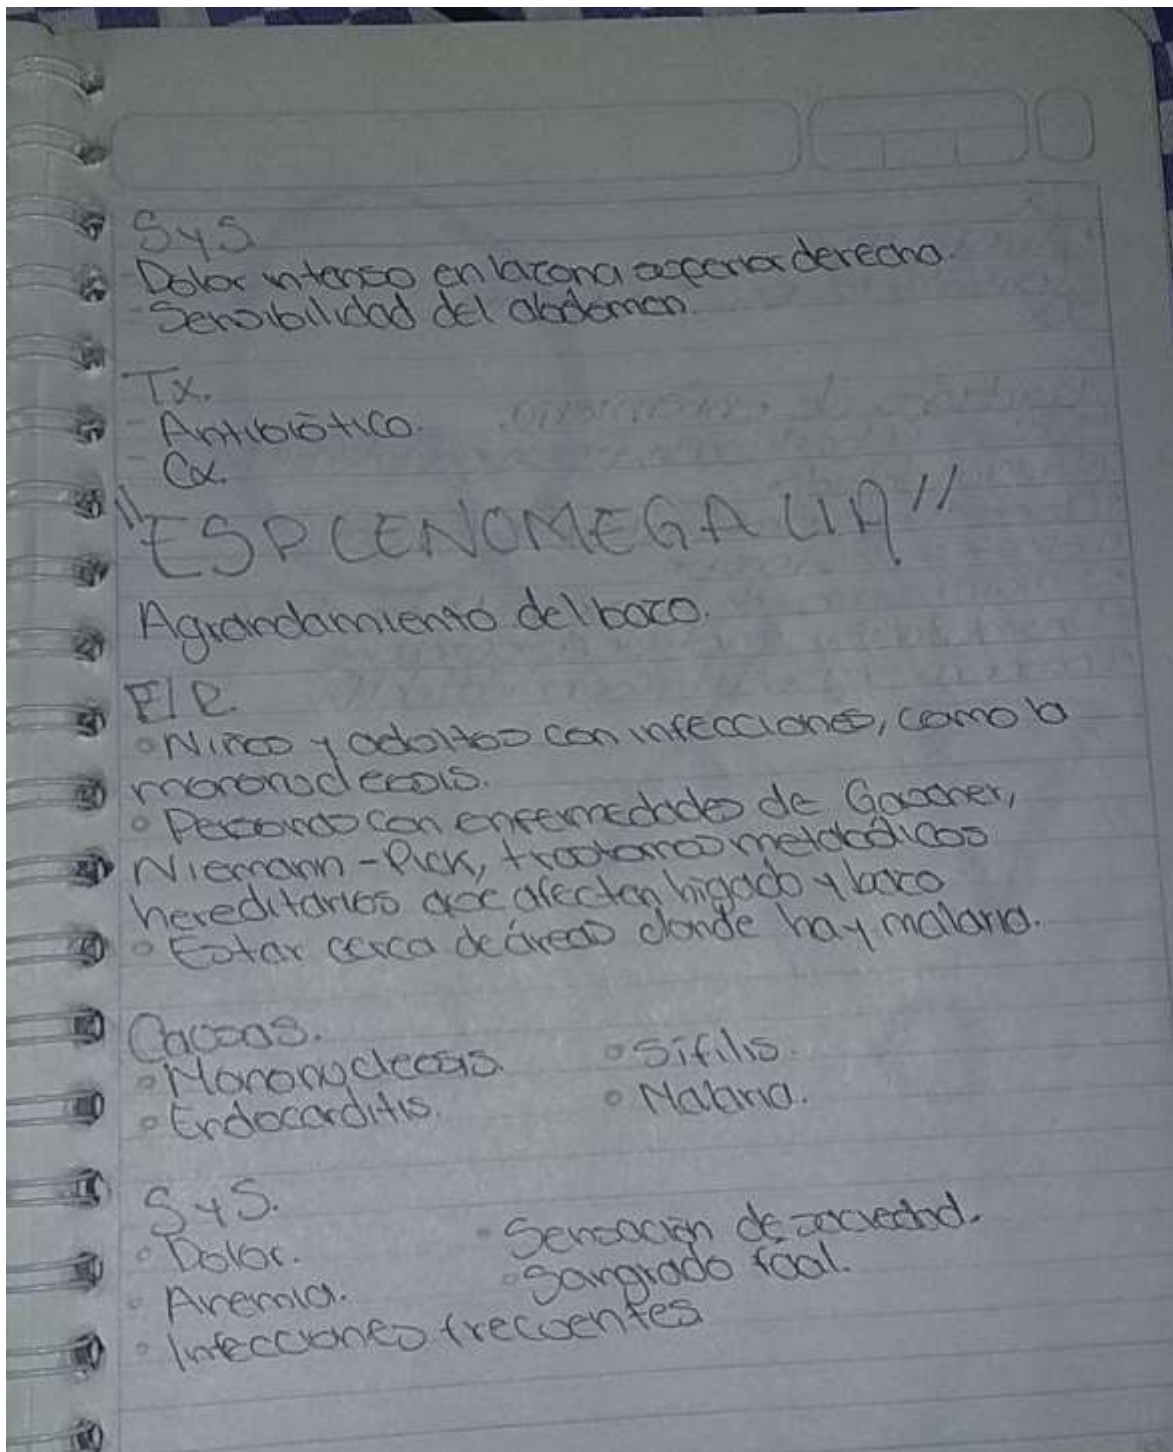 SyS
- Dolor intenso en la zona superior derecha.
- Sensibilidad del abdomen.
Tx.
- Antibiótico.
- Cx.
"ESPLENOMEGALIA"
Agrandamiento del bazo.
F/R.
• Niños y adultos con infecciones, como la
mononucleosis.
• Personas con enfermedades de Gaucher,
Niemann-Pick, trastornos metabólicos
hereditarios que afectan hígado y bazo
• Estar cerca de áreas donde hay malaria.
Causas.
• Mononucleosis. • Sífilis.
• Endocarditis. • Malaria.
SyS.
• Dolor. • Sensación de saciedad.
• Anemia. • Sangrado fácil.
• Infecciones frecuentes